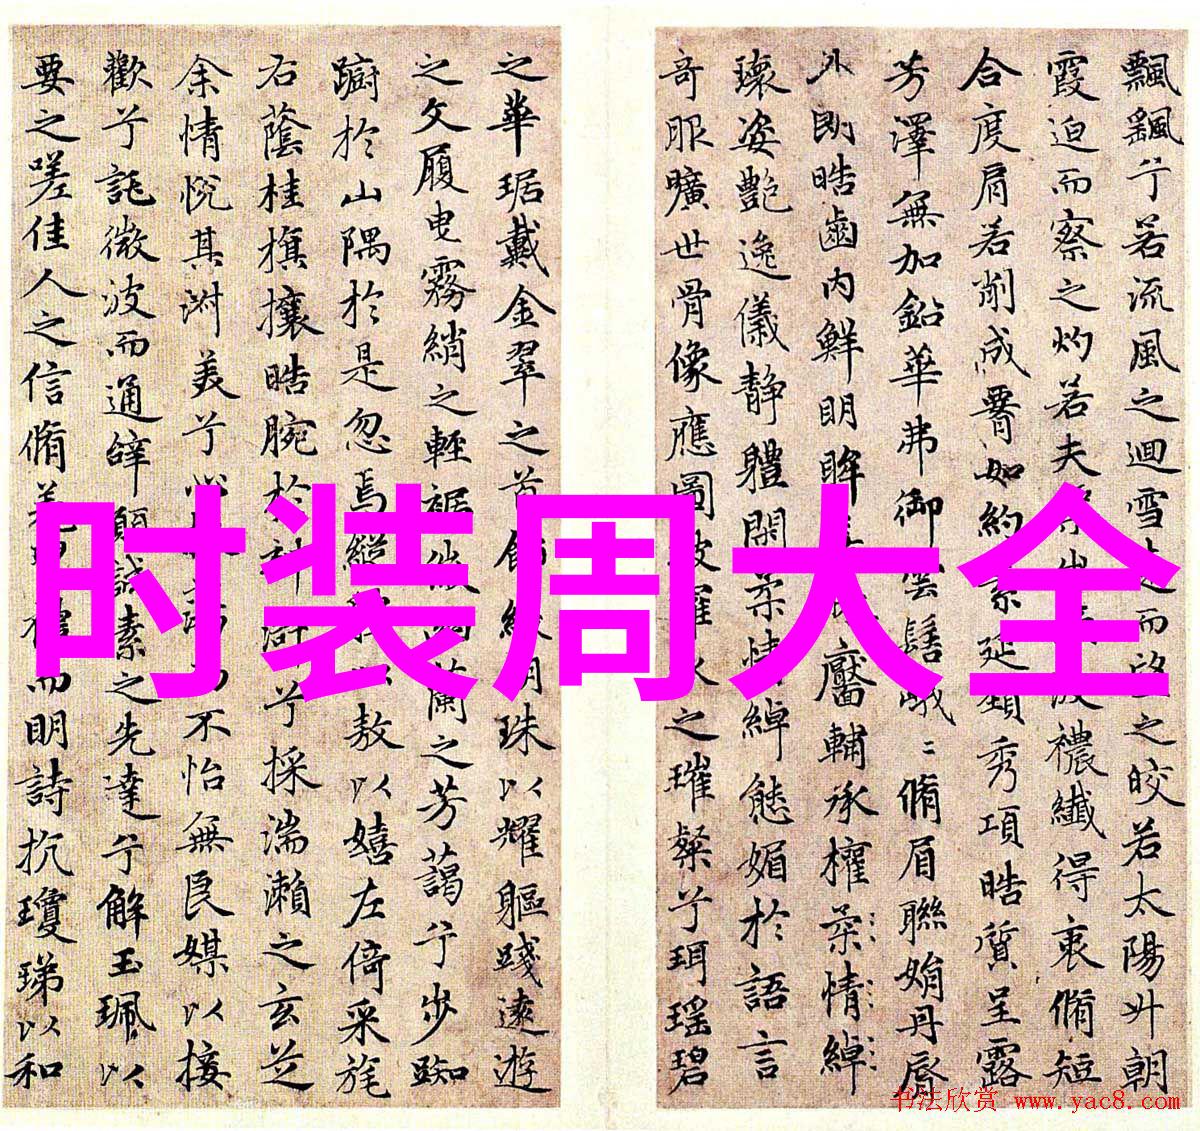 飄飖兮若流風之迴雪遠而望之皎若太陽升朝
霞迫而察之灼若夫 波禯纖得衷脩短
合度肩若削成署如約素延頸秀項皓質呈露
芳澤無加鉛華弗御雲髻峨〻脩眉聯娟丹唇
外朗皓齒內鮮明眸 靨輔承權柔情綽
瓌姿艷逸儀靜體閑柔情綽態媚於語言
奇服曠世骨像應圖披羅衣之璀粲兮珥瑶碧
之華琚戴金翠之首飾綴明珠以耀軀踐遠遊
之文履曳霧綃之輕裾 蘭之芳藹兮步踟
躕於山隅於是忽焉縱 以敖以嬉左倚采旄
右蔭桂旗攘皓腕於 滸兮採湍瀨之玄芝
余情悅其淑美兮心 而不怡無良媒以接
歡兮託微波而通辭願誠素之先達兮解玉珮以
要之嗟佳人之信脩羌 而明詩抗瓊珶以和
时装周大全
书法欣赏 www.yac8.com